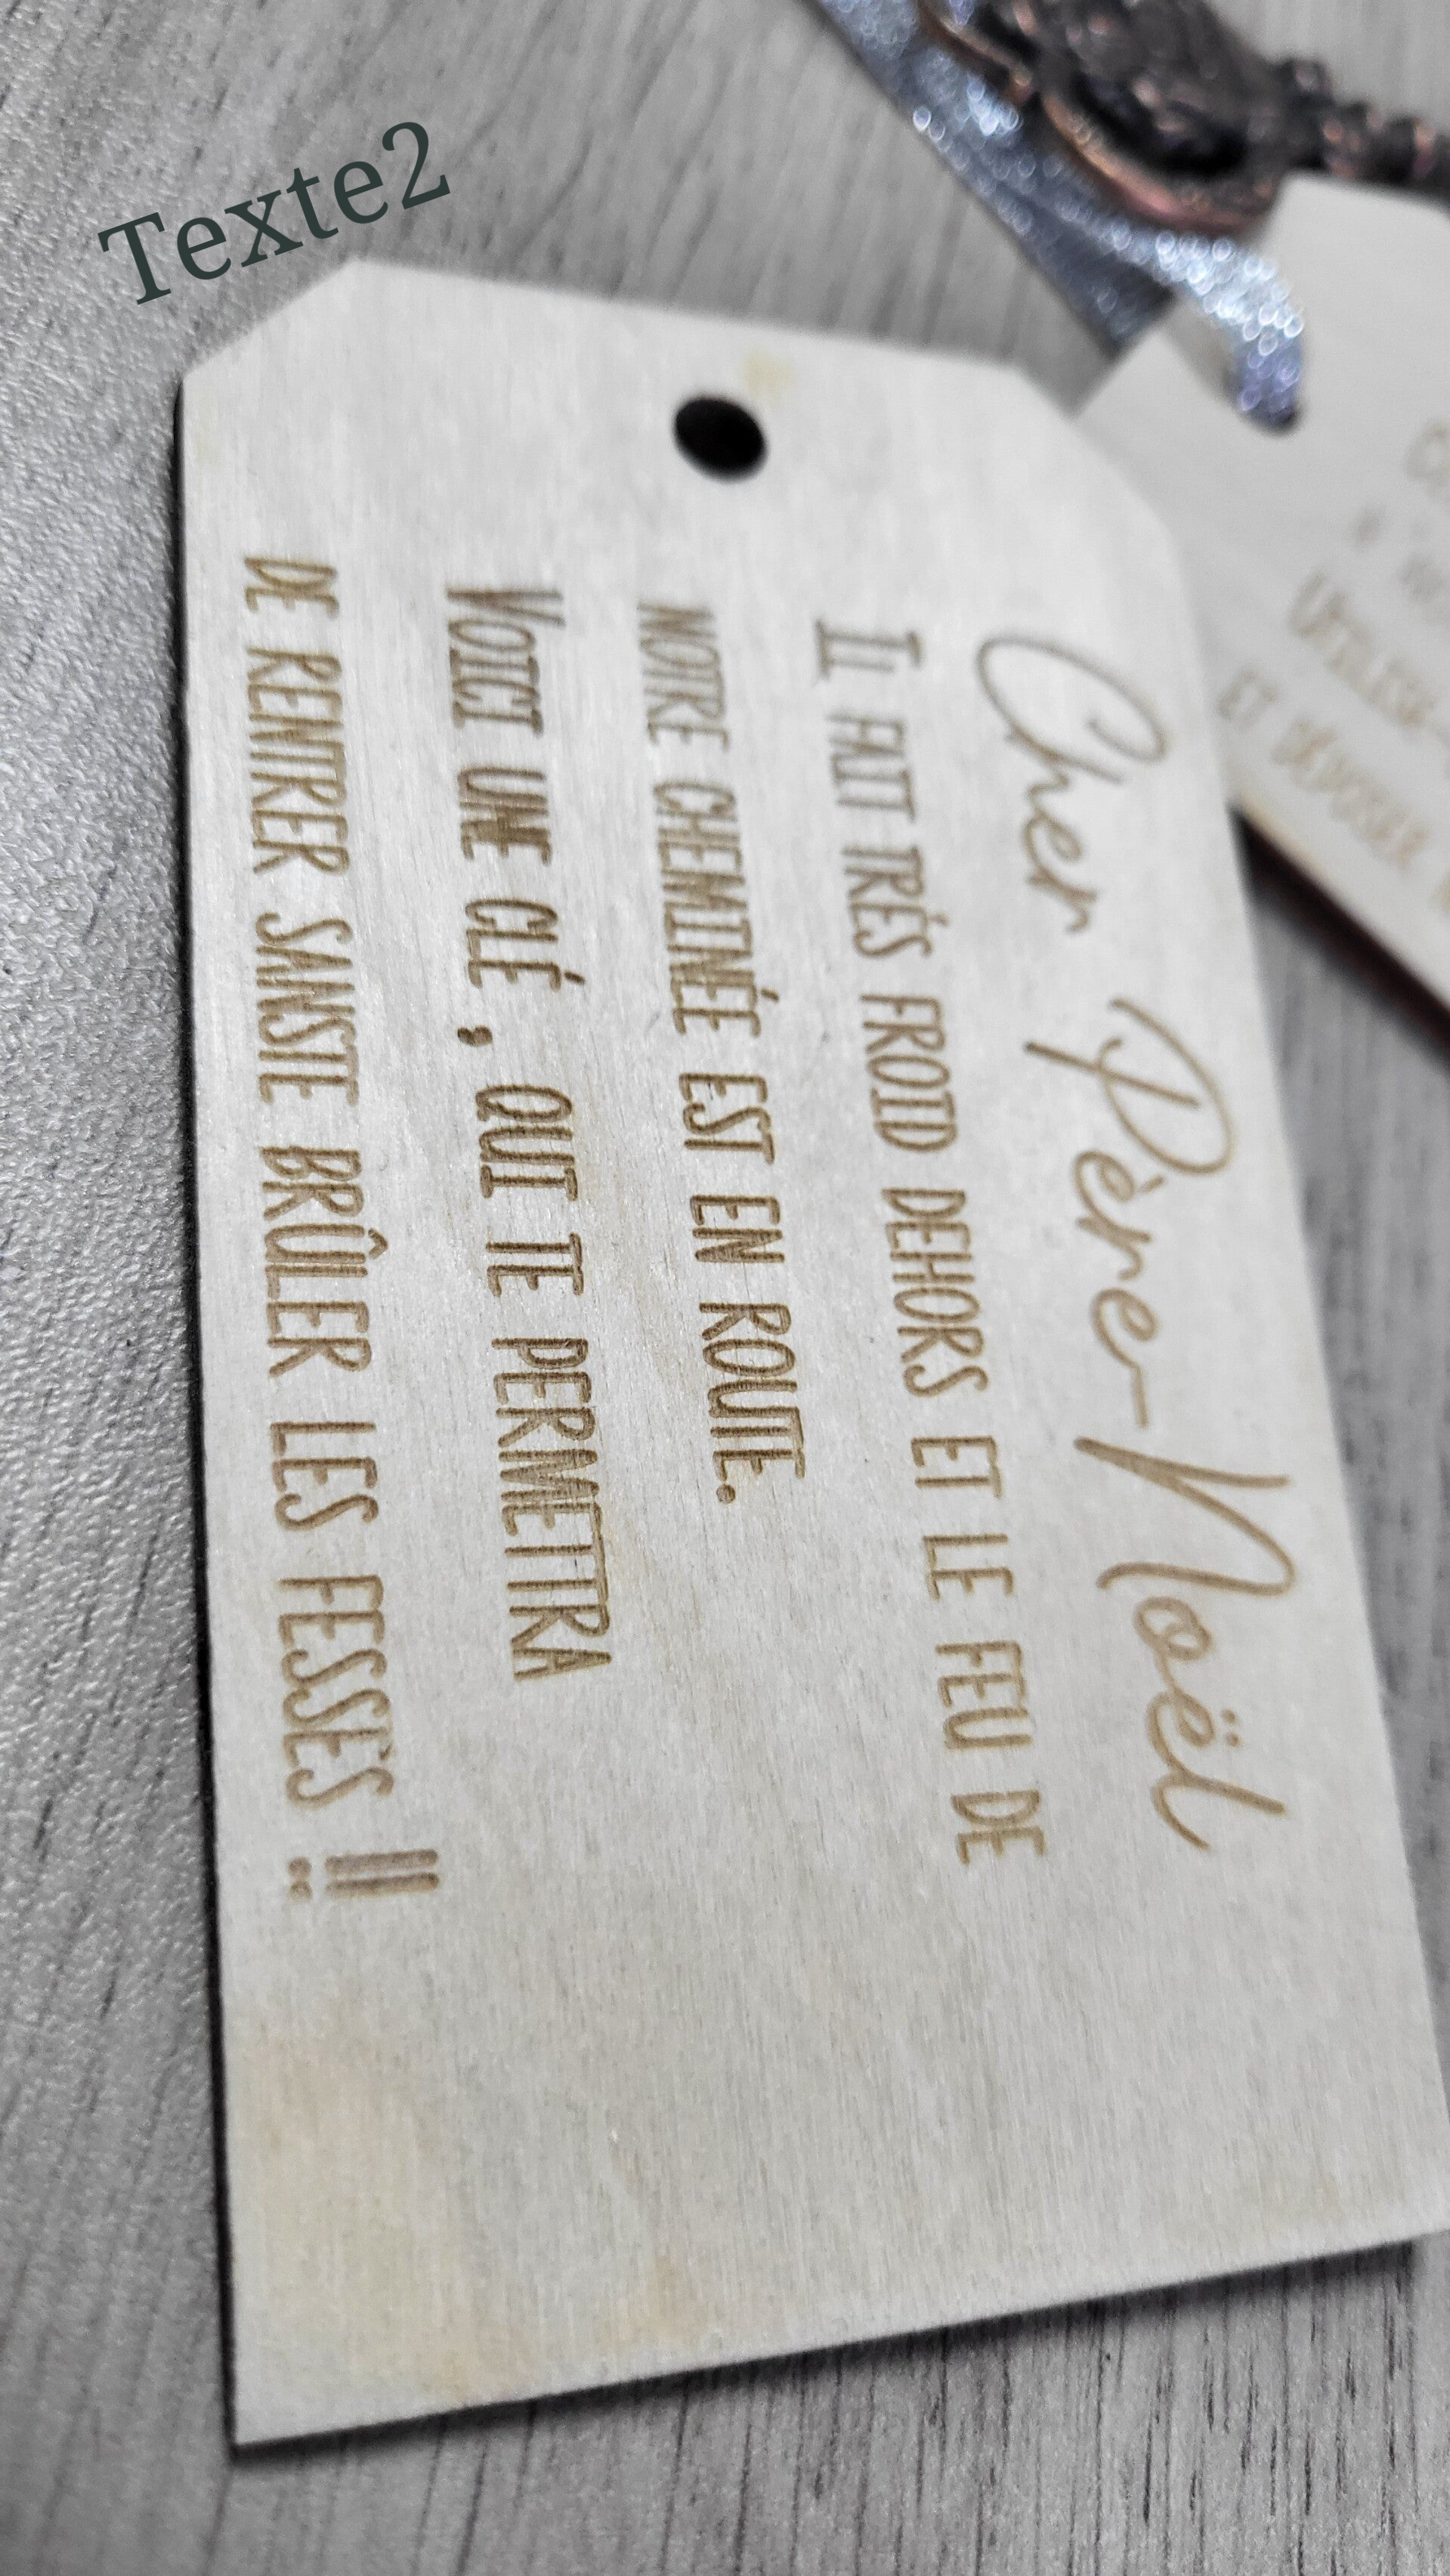 Texte2
Cher Père-Noël
Il fait trés froid dehors et le feu de
notre cheminée est en route.
Voici une clé , qui te permettra
de rentrer sanste brûler les fesses !!
Utilise-
et déposer